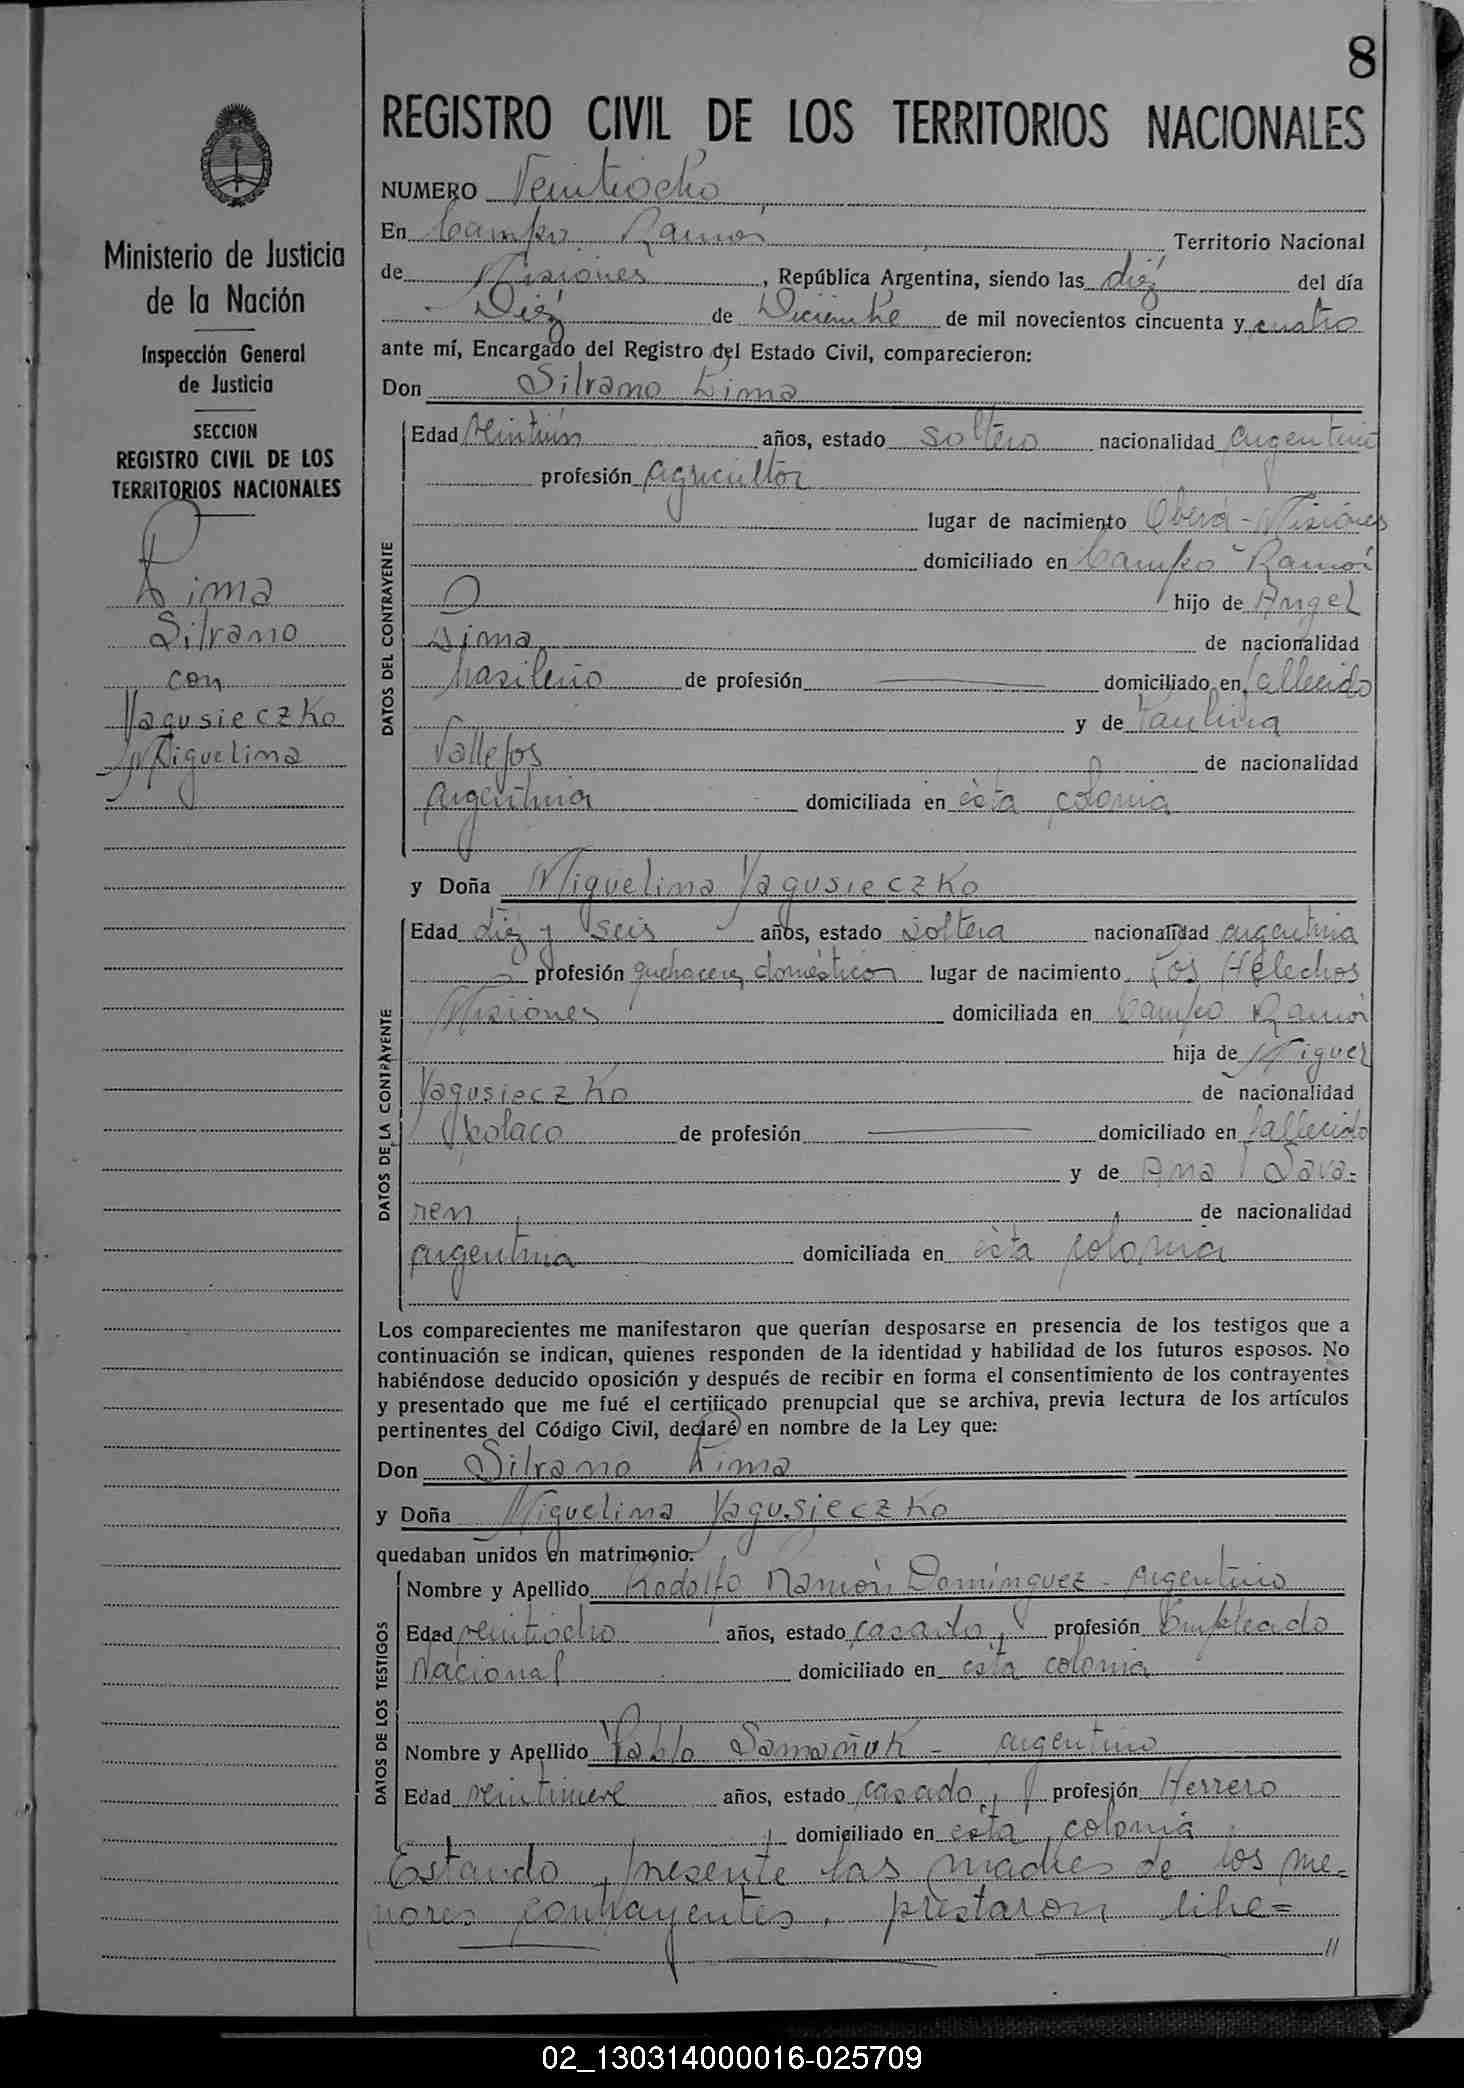 8
REGISTRO CIVIL DE LOS TERRITORIOS NACIONALES
Ministerio de Justicia
de la Nación
Inspección General
de Justicia
SECCION
REGISTRO CIVIL DE LOS
TERRITORIOS NACIONALES
Lima
Silvano
con
Yagusieczko
Miguelina
NUMERO Veintiocho
En Campo Ramón Territorio Nacional
de Misiones, República Argentina, siendo las diéz del día
Diéz de Diciembre de mil novecientos cincuenta y cuatro
ante mí, Encargado del Registro del Estado Civil, comparecieron:
Don Silvano Lima
DATOS DEL CONTRAYENTE
Edad veintiún años, estado soltero nacionalidad argentina
profesión agricultor
lugar de nacimiento Oberá - Misiones
domiciliado en Campo Ramón
hijo de Angel
Lima de nacionalidad
brasileño de profesión domiciliado en fallecido
y de Paulina
Vallejos de nacionalidad
argentina domiciliada en ésta colonia
y Doña Miguelina Yagusieczko
DATOS DE LA CONTRAYENTE
Edad diéz y seis años, estado soltera nacionalidad argentina
profesión quehaceres domésticos lugar de nacimiento Los Helechos
Misiones domiciliada en Campo Ramón
hija de Miguel
Yagusieczko de nacionalidad
polaco de profesión domiciliado en fallecido
y de Ana Sava=
ren de nacionalidad
argentina domiciliada en ésta colonia
Los comparecientes me manifestaron que querían desposarse en presencia de los testigos que a
continuación se indican, quienes responden de la identidad y habilidad de los futuros esposos. No
habiéndose deducido oposición y después de recibir en forma el consentimiento de los contrayentes
y presentado que me fué el certificado prenupcial que se archiva, previa lectura de los artículos
pertinentes del Código Civil, declaré en nombre de la Ley que:
Don Silvano Lima
y Doña Miguelina Yagusieczko
quedaban unidos en matrimonio.
DATOS DE LOS TESTIGOS
Nombre y Apellido Rodolfo Ramón Domínguez - argentino
Edad veintiocho años, estado casado, profesión Empleado
Nacional domiciliado en esta colonia
Nombre y Apellido Pablo Samañuk - argentino
Edad veintinueve años, estado casado, profesión Herrero
domiciliado en esta colonia
Estando presente las madres de los me=
nores contrayentes, prestaron libe=
//
02_130314000016-025709